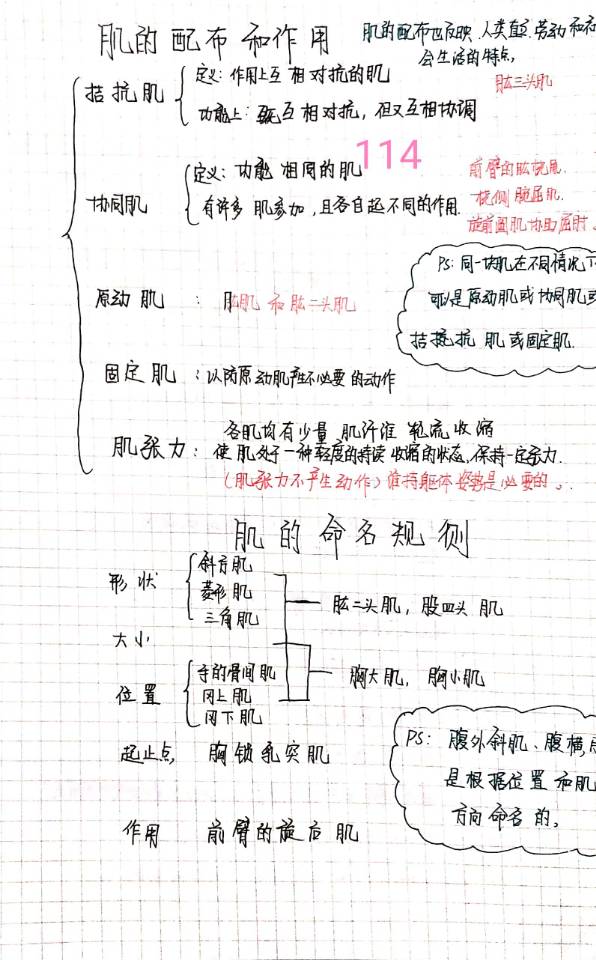 肌的配布和作用
肌的配布也反映人类直立、劳动和社
会生活的特点,
拮抗肌
定义: 作用上互相对抗的肌
肱三头肌
功能上: 既互相对抗, 但又互相协调
114
协同肌
定义: 功能相同的肌
有许多肌参加, 且各自起不同的作用.
前臂的肱桡肌.
桡侧腕屈肌.
旋前圆肌协助屈肘.
PS: 同一块肌在不同情况下
可以是原动肌或协同肌或
拮抗肌或固定肌.
原动肌 : 肱肌和肱二头肌
固定肌 : 以防原动肌产生不必要的动作
肌张力:
各肌均有少量肌纤维轮流收缩
使肌处于一种轻度的持续收缩的状态, 保持一定张力.
(肌张力不产生动作) 维持躯体姿势是必要的。
肌的命名规则
形状
斜方肌
菱形肌
三角肌
肱二头肌, 股四头肌
大小
胸大肌, 胸小肌
位置
手的骨间肌
冈上肌
冈下肌
起止点, 胸锁乳突肌
PS: 腹外斜肌、腹横
是根据位置和肌
方向命名的。
作用 前臂的旋后肌